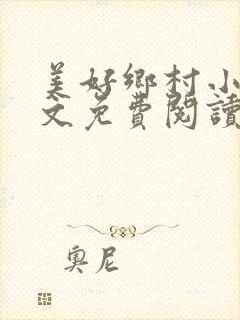 美好鄉村小
文免費閱讀
奧尼